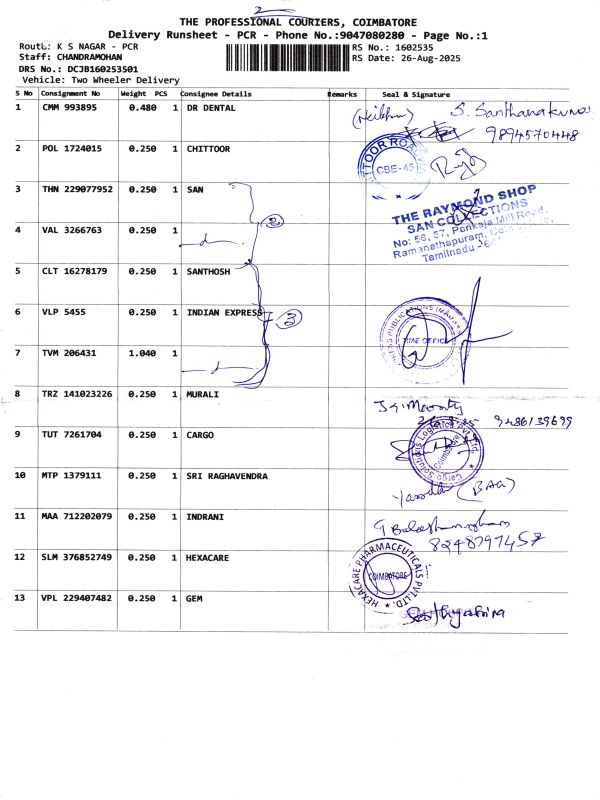 2
THE PROFESSIONAL COURIERS, COIMBATORE
Delivery Runsheet - PCR - Phone No.:9047080280 - Page No.:1
Route: K S NAGAR - PCR RS No.: 1602535
Staff: CHANDRAMOHAN RS Date: 26-Aug-2025
DRS No.: DCJB160253501
Vehicle: Two Wheeler Delivery
S No Consignment No Weight PCS Consignee Details Remarks Seal & Signature
1 CMM 993895 0.480 1 DR DENTAL S. Santhanakumar
9894570448
2 POL 1724015 0.250 1 CHITTOOR
CBE-45
3 THN 229077952 0.250 1 SAN
2
THE RAYMOND SHOP
SAN COLLECTIONS
No: 56, 57, Pankaja Mill Road,
Ramanathapuram,
Tamilnadu
4 VAL 3266763 0.250 1
5 CLT 16278179 0.250 1 SANTHOSH
6 VLP 5455 0.250 1 INDIAN EXPRESS
3
TIME OFFICE
7 TVM 206431 1.040 1
8 TRZ 141023226 0.250 1 MURALI
9486139699
9 TUT 7261704 0.250 1 CARGO
Cargo Solutions Logistics Pvt Ltd
Coimbatore
10 MTP 1379111 0.250 1 SRI RAGHAVENDRA
(BAG)
11 MAA 712202079 0.250 1 INDRANI
8248797457
12 SLM 376852749 0.250 1 HEXACARE
HEXACARE PHARMACEUTICALS PVT.LTD.
COIMBATORE
13 VPL 229407482 0.250 1 GEM